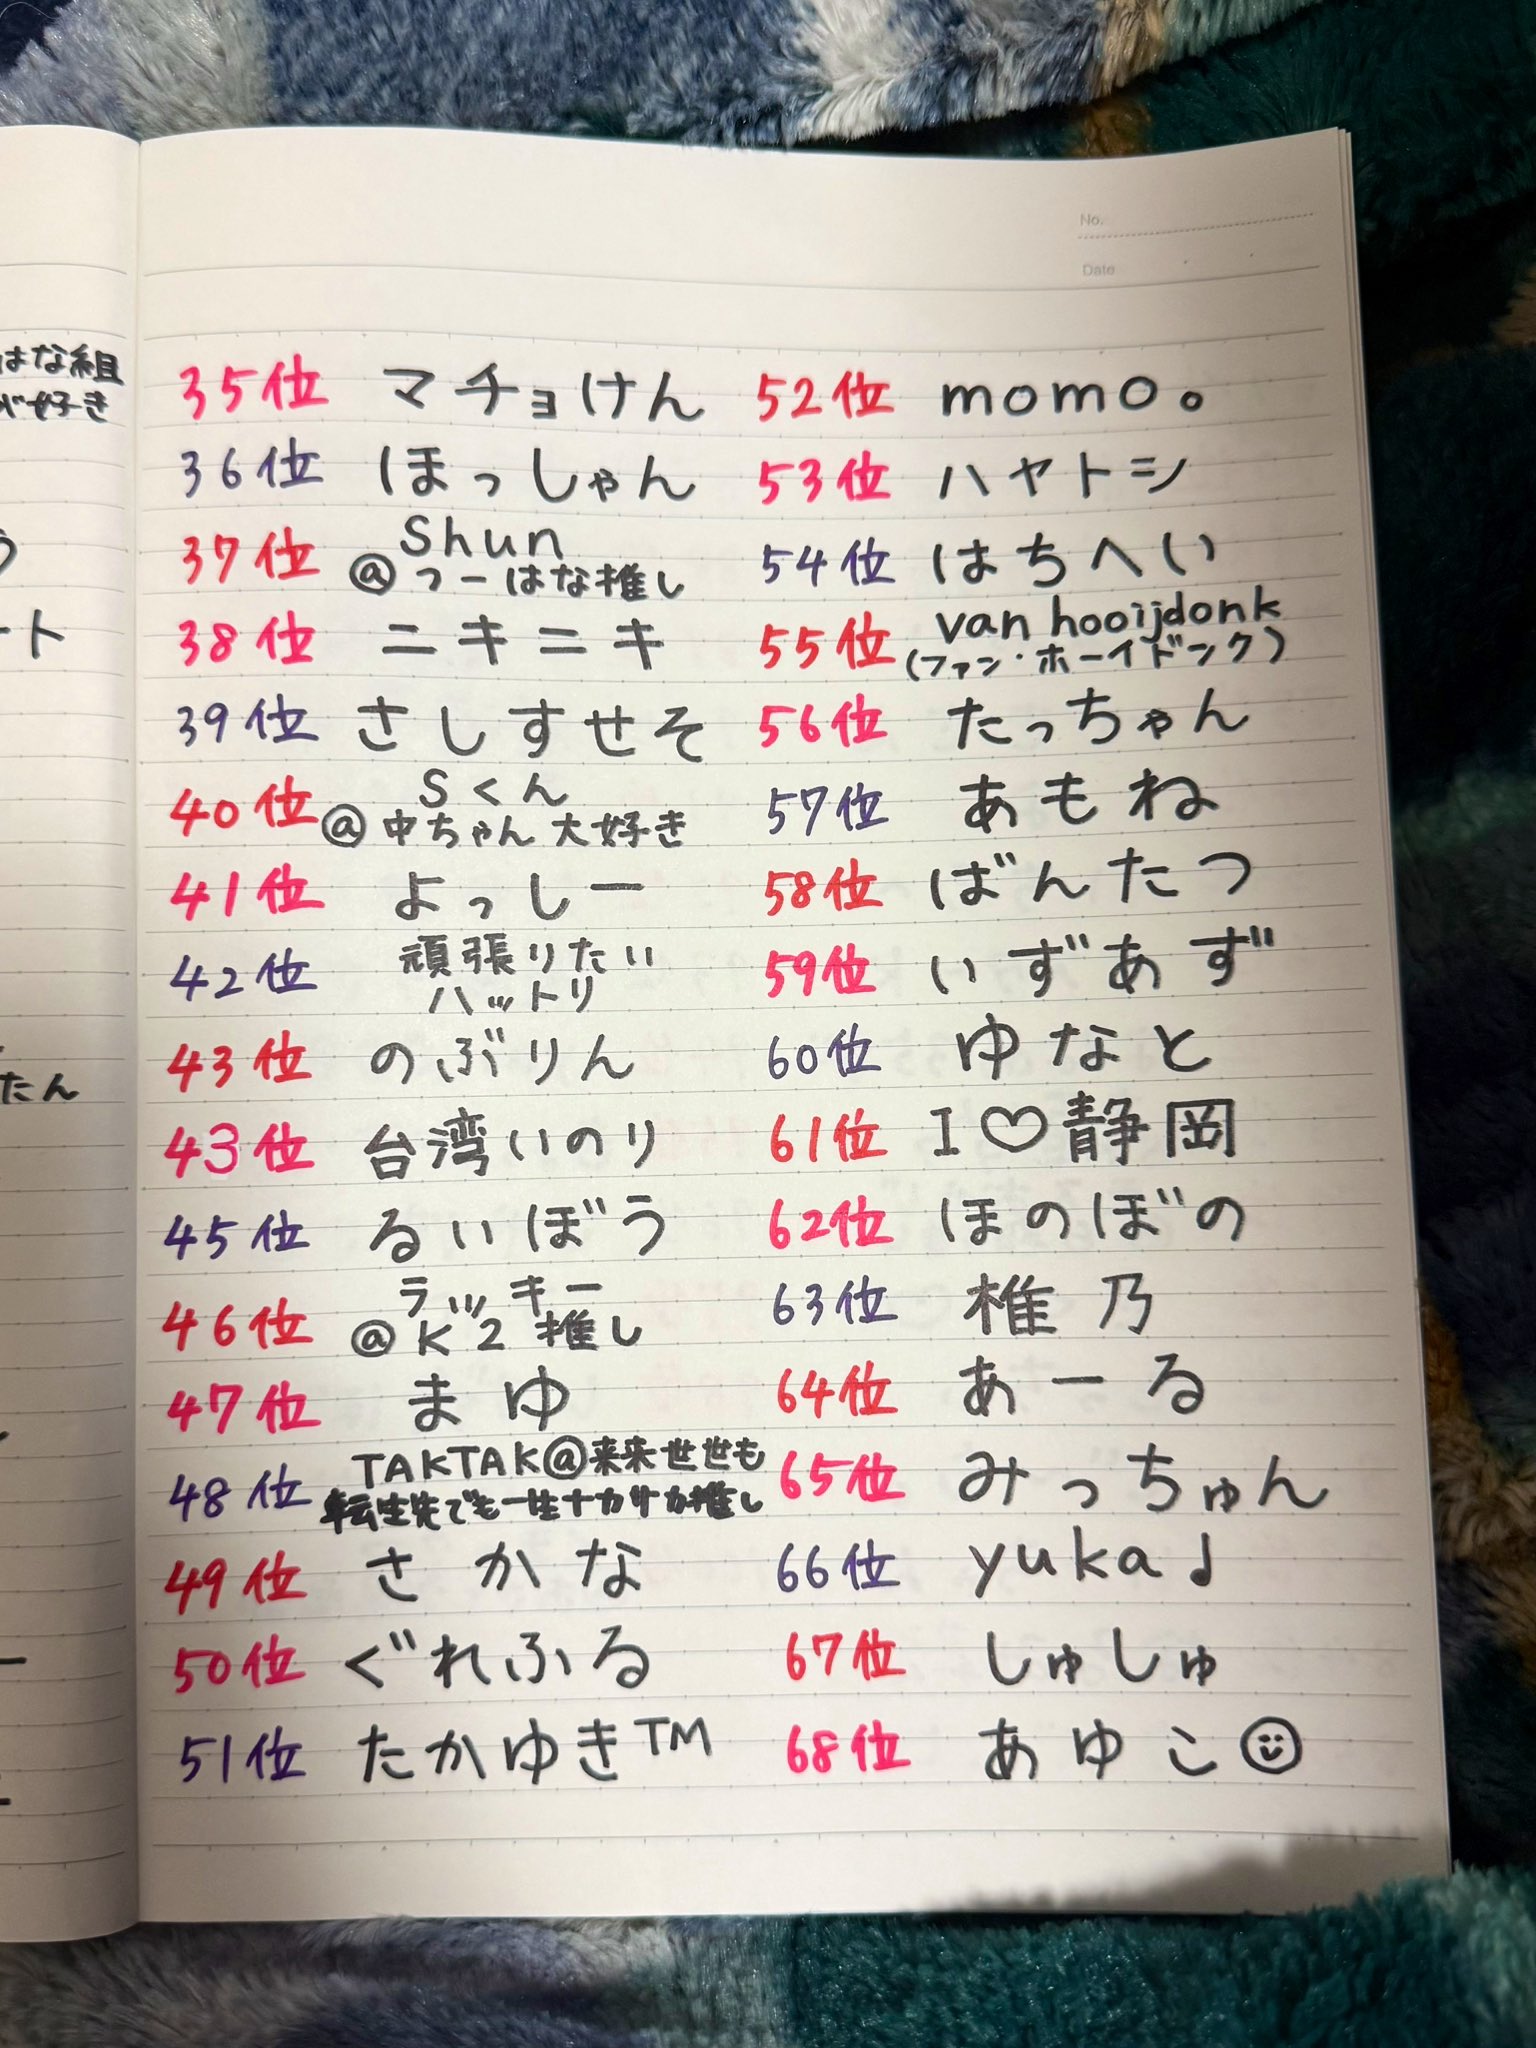 はな組
が好き
う
ート
たん
ー
No.
Date
35位 マチョけん
36位 ほっしゃん
37位 Shun
@つーはな推し
38位 ニキニキ
39位 さしすせそ
40位 Sくん
@中ちゃん大好き
41位 よっしー
42位 頑張りたい
ハットリ
43位 のぶりん
43位 台湾いのり
45位 るいぼう
46位 ラッキー
@K2推し
47位 まゆ
48位 TAKTAK@来来世世も
転生先でも一生ナカサカ推し
49位 さかな
50位 ぐれふる
51位 たかゆきTM
52位 momo。
53位 ハヤトシ
54位 はちへい
55位 van hooijdonk
(ファン・ホーイドンク)
56位 たっちゃん
57位 あもね
58位 ばんたつ
59位 いずあず
60位 ゆなと
61位 I♡静岡
62位 ほのぼの
63位 椎乃
64位 あーる
65位 みっちゅん
66位 yuka♩
67位 しゅしゅ
68位 あゆこ☺